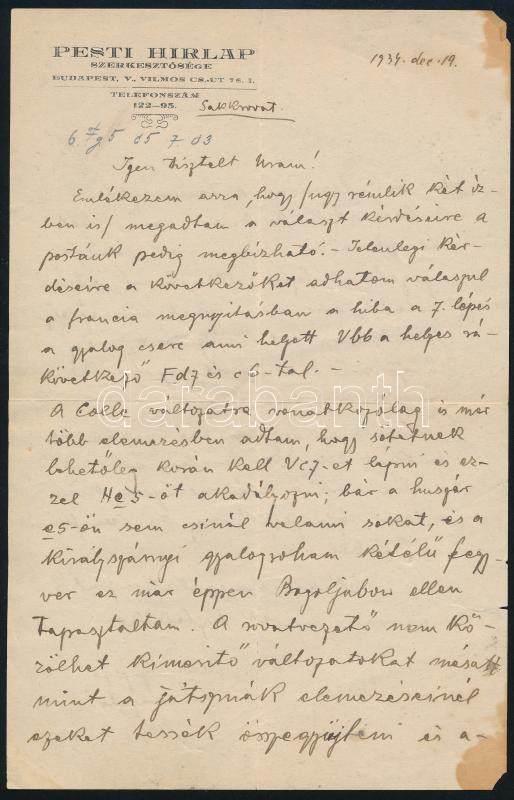 PESTI HIRLAP
SZERKESZTŐSÉGE
BUDAPEST, V., VILMOS CS.-UT 78. I.
TELEFONSZÁM
122-95.
1934. dec. 19.
Sakkrovat.
6. g5 d5 7. d3
Igen tisztelt Uram!
Emlékezem arra, hogy /ugy rémlik két iz-
ben is/ megadtam a választ kérdéseire a
postánk pedig megbizható. - Jelenlegi kér-
déseire a következőket adhatom válaszul
a francia megnyitásban a hiba a 7. lépés
a gyalog csere ami helyett Vb6 a helyes rá-
következő Fd7 és c6-tal. -
A Colle változatra vonatkozólag is már
több elemzésben adtam, hogy sötétnek
lehetőleg korán kell Vc7-et lépni és ez-
zel He5-öt akadályozni; bár a huszár
e5-ön sem csinál valami sokat, és a
királyszárnyi gyalogroham kétélű fegy-
ver ez már éppen Bogoljubow ellen
tapasztaltam. A rovatvezető nem kö-
zölhet kimeritő változatokat másutt
mint a játszmák elemzéseinél
ezeket tessék összegyüjteni és a-
darabanth